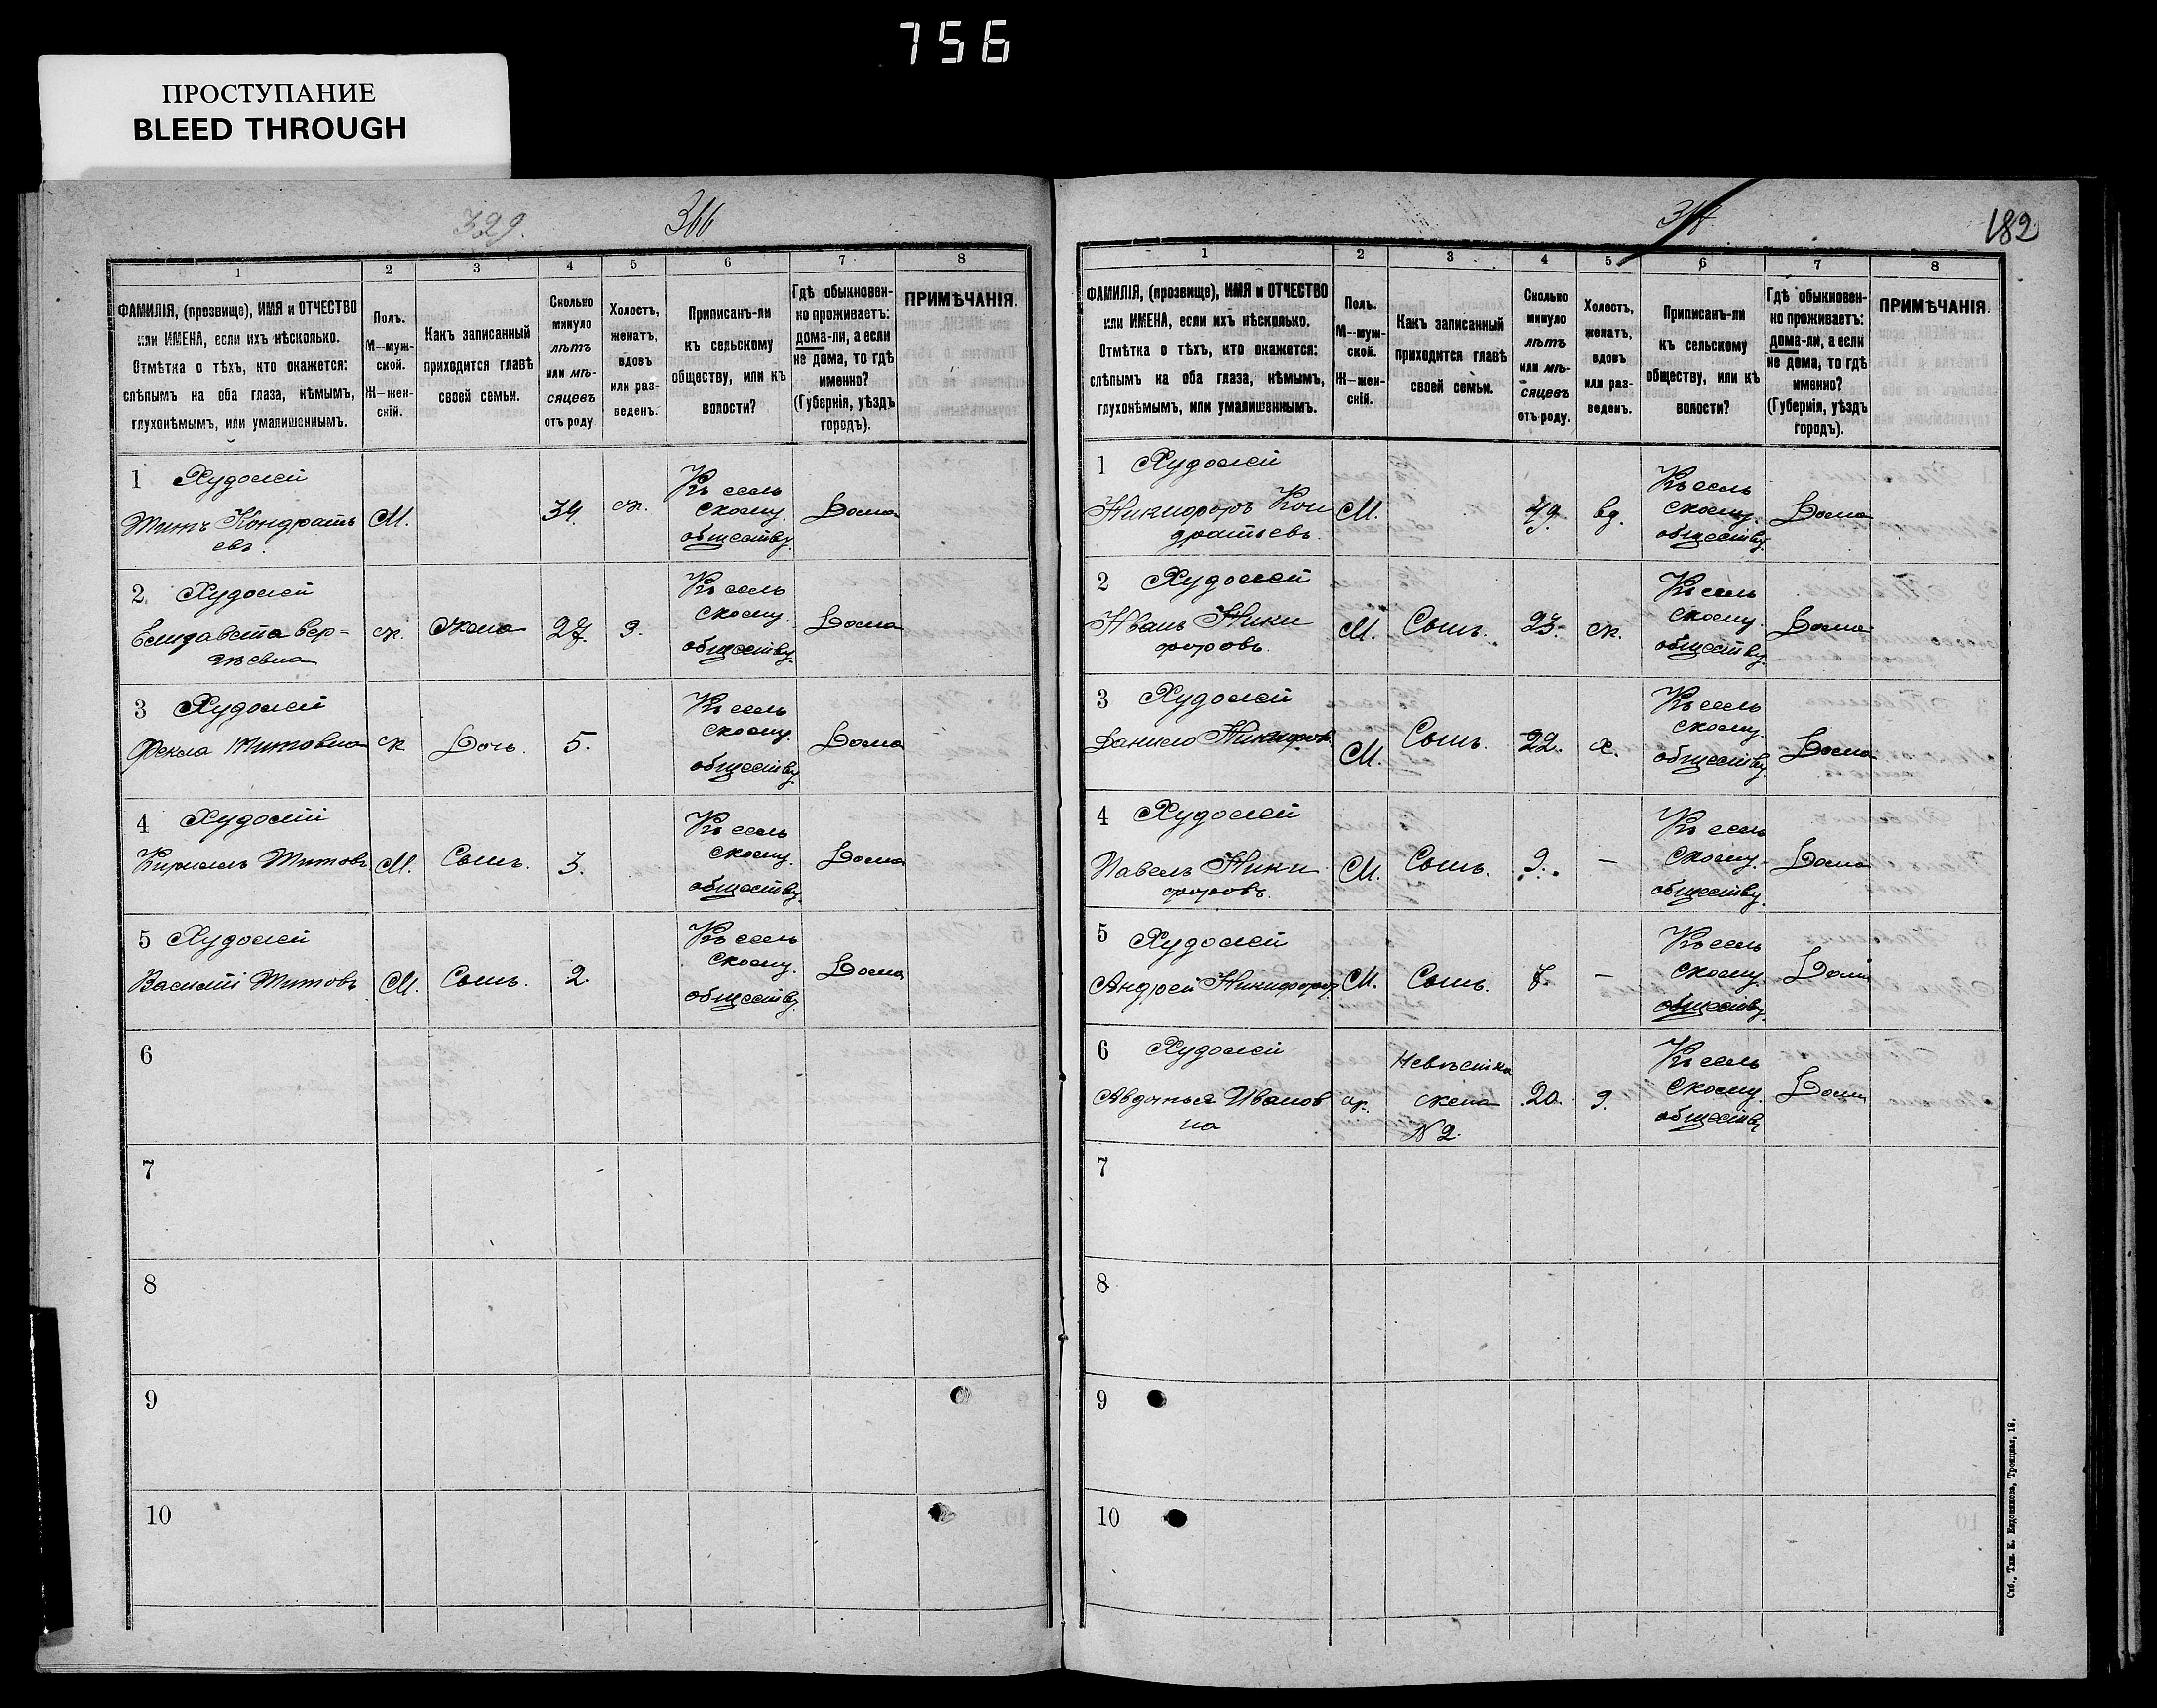 756
ПРОСТУПАНИЕ
BLEED THROUGH
329.
366
1 2 3 4 5 6 7 8
ФАМИЛІЯ, (прозвище), ИМЯ и ОТЧЕСТВО
или ИМЕНА, если ихъ нѣсколько.
Отмѣтка о тѣхъ, кто окажется:
слѣпымъ на оба глаза, нѣмымъ,
глухонѣмымъ, или умалишеннымъ.
Полъ.
М—муж-
ской.
Ж—жен-
скій.
Какъ записанный
приходится главѣ
своей семьи.
Сколько
минуло
лѣтъ
или мѣ-
сяцевъ
отъ роду
Холостъ,
женатъ,
вдовъ
или раз-
веденъ.
Приписанъ-ли
къ сельскому
обществу, или къ
волости?
Гдѣ обыкновен-
но проживаетъ:
дома-ли, а если
не дома, то гдѣ
именно?
(Губернія, уѣздъ
городъ).
ПРИМѢЧАНІЯ.
1 Худолей
Титъ Кондрать
евъ.
М.
34.
ж.
Къ сель
скому.
обществу.
Дома
2. Худолей
Елизавета Сер=
гѣевна
ж.
Жена
27.
з.
Къ сель
скому.
обществу.
Дома
3 Худолей
Фекла Титовна
ж
Дочь.
5.
Къ сель
скому.
обществу.
Дома
4 Худолій
Кириллъ Титовъ.
М.
Сынъ.
3.
Къ сель
скому.
обществу.
Дома
5 Худолей
Василій Титовъ
М.
Сынъ.
2.
Къ сель
скому.
обществу.
Дома
6
7
8
9
10
182
1 2 3 4 5 6 7 8
ФАМИЛІЯ, (прозвище), ИМЯ и ОТЧЕСТВО
или ИМЕНА, если ихъ нѣсколько.
Отмѣтка о тѣхъ, кто окажется:
слѣпымъ на оба глаза, нѣмымъ,
глухонѣмымъ, или умалишеннымъ.
Полъ.
М—муж-
ской.
Ж—жен-
скій.
Какъ записанный
приходится главѣ
своей семьи.
Сколько
минуло
лѣтъ
или мѣ-
сяцевъ
отъ роду.
Холостъ,
женатъ,
вдовъ
или раз-
веденъ.
Приписанъ-ли
къ сельскому
обществу, или къ
волости?
Гдѣ обыкновен-
но проживаетъ:
дома-ли, а если
не дома, то гдѣ
именно?
(Губернія, уѣздъ
городъ).
ПРИМѢЧАНІЯ.
1 Худолей
Никифоръ Кон
дратьевъ.
М.
49.
вд.
Къ сель
скому.
обществу.
Дома
2 Худолей
Иванъ Ники
форовъ.
М.
Сынъ.
23.
ж.
Къ сель
скому.
обществу.
Дома
3 Худолей
Данило Никифоров.
М.
Сынъ.
22.
х.
Къ сель
скому.
обществу.
Дома
4 Худолей
Павелъ Ники
форовъ.
М.
Сынъ.
9.
—
Къ сель
скому.
обществу.
Дома
5 Худолей
Андрей Никифоров
М.
Сынъ.
7.
—
Къ сель
скому
обществу.
Дома
6 Худолей
Авдотья Иванов
на
ж.
Невѣстка
жена
№2.
20.
з.
Къ сель
скому.
обществу
Дома
7
8
9
10
Спб., Тип. Е. Евдокимова, Троицкая, 18.